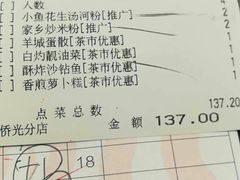 人数
小鱼花生汤河粉[推广]
家乡炒米粉[推广]
羊城蛋散[茶市优惠]
白灼靓油菜[茶市优惠]
酥炸沙钻鱼[茶市优惠]
香煎萝卜糕[茶市优惠]
137.20
点菜总数
侨光分店 金额 137.00
18